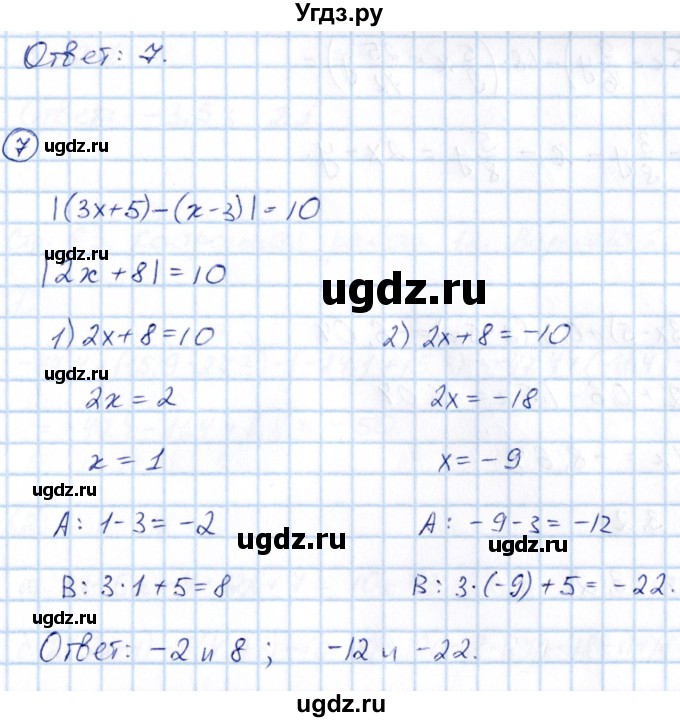 Угдз.ру
Ответ: 7.
7 ugdz.ru
|(3x+5)-(x-3)|=10
ugdz.ru
|2x+8|=10
ugdz.ru
1) 2x+8=10 2) 2x+8=-10
ugdz.ru
2x=2 2x=-18
x=1 x=-9
ugdz.ru
A: 1-3=-2 A: -9-3=-12
ugdz.ru ugdz.ru
B: 3·1+5=8 B: 3·(-9)+5=-22.
ugdz.ru
Ответ: -2 и 8; -12 и -22.
ugdz.ru